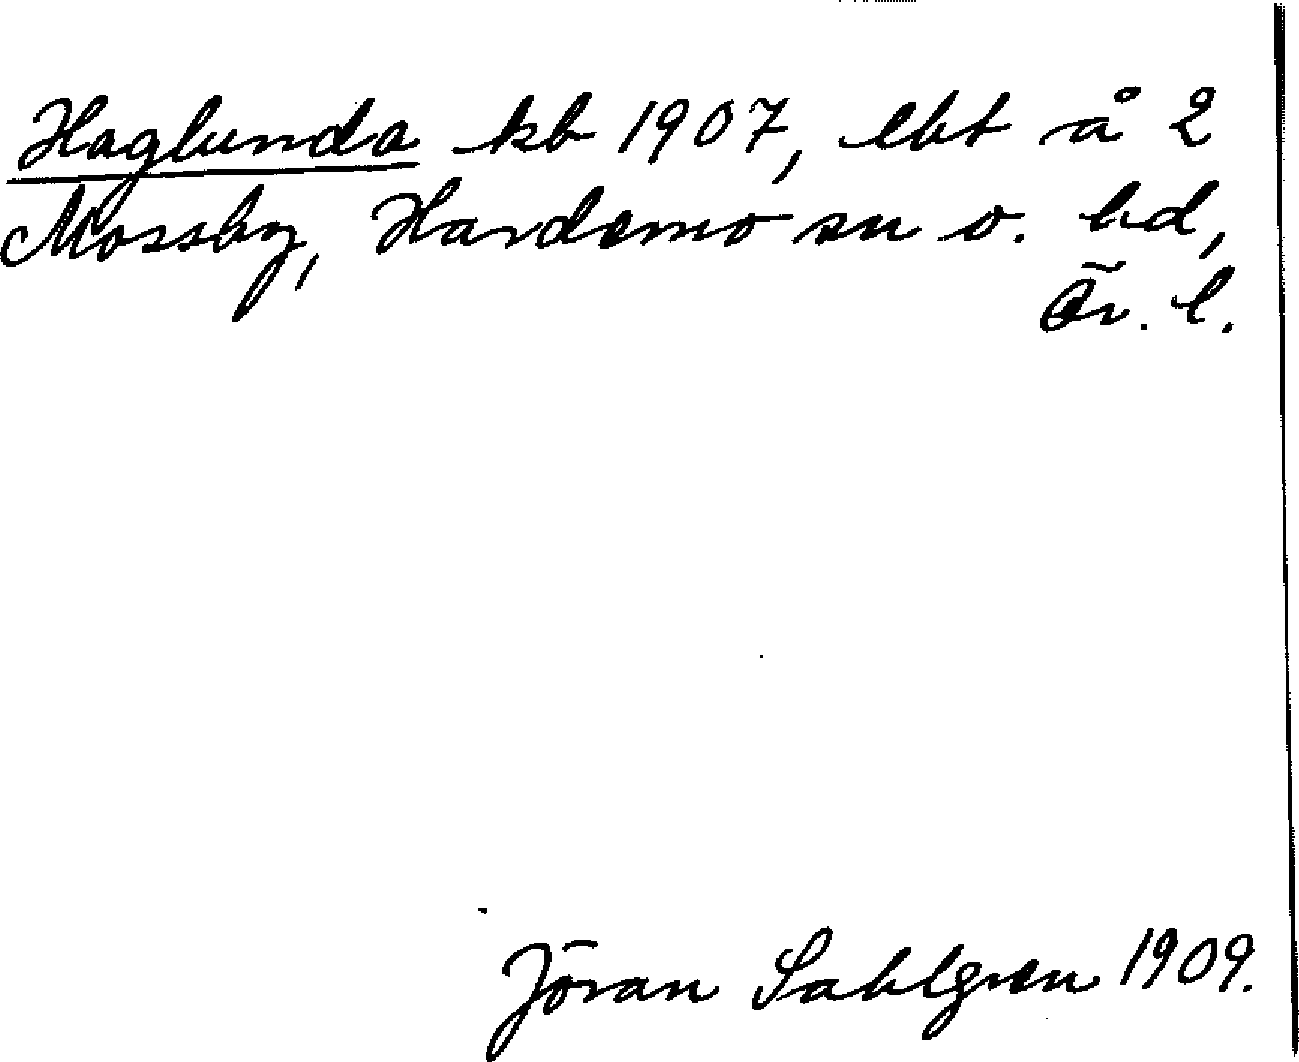 Haglunda kb 1907, lht å 2
Mossby, Hardemo sn o. hd,
Ör. l.
Jöran Sahlgren 1909.